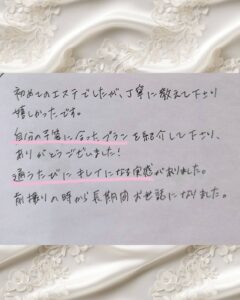 初めてのエステでしたが、丁寧に教えて下さり
嬉しかったです。
自分の予算に合ったプランを紹介して下さり、
ありがとうございました!
通うたびにキレイになる実感がありました。
前撮りの時から長期間お世話になりました。